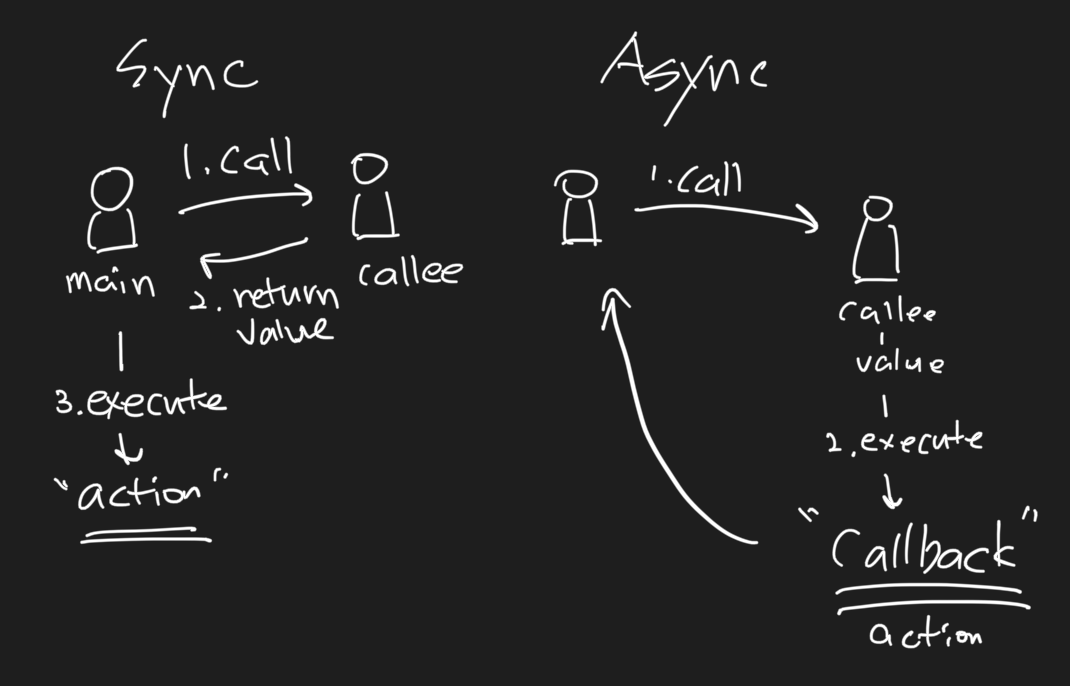 Sync
1. call
main
callee
2. return
value
3. execute
"action"
Async
1. call
callee
value
2. execute
"Callback"
action